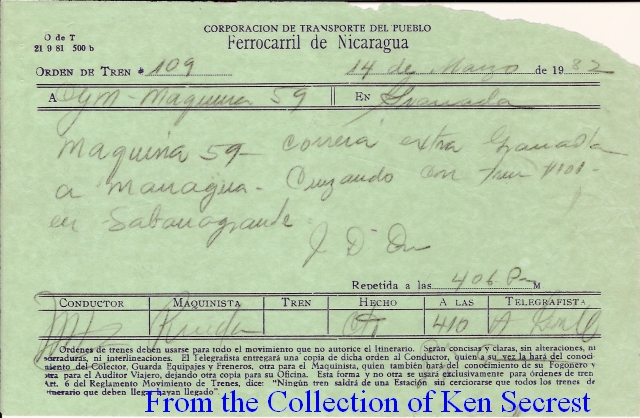 CORPORACION DE TRANSPORTE DEL PUEBLO
O de T
21 9 81 500 b
Ferrocarril de Nicaragua
ORDEN DE TREN # 109 14 de Marzo de 1982
A C y M - Maquina 59 EN Granada
Maquina 59 - correrá extra Granada
a Managua. Cruzando con tren #101.
en Sabanagrande
Repetida a las 406 P M
CONDUCTOR MAQUINISTA TREN HECHO A LAS TELEGRAFISTA
410
Ordenes de trenes deben usarse para todo el movimiento que no autorice el Itinerario. Serán concisas y claras, sin alteraciones, ni
borraduras, ni interlineaciones. El Telegrafista entregará una copia de dicha orden al Conductor, quien a su vez la hará del conoci
miento del Colector, Guarda Equipajes y Freneros, otra para el Maquinista, quien también hará del conocimiento de su Fogonero y
otra para el Auditor Viajero, dejando otra copia para su Oficina. Esta forma y no otra se usará exclusivamente para órdenes de tren
Art. 6 del Reglamento Movimiento de Trenes, dice: "Ningún tren saldrá de una Estación sin cerciorarse que todos los trenes de
itinerario que deben llegar hayan llegado".
From the Collection of Ken Secrest